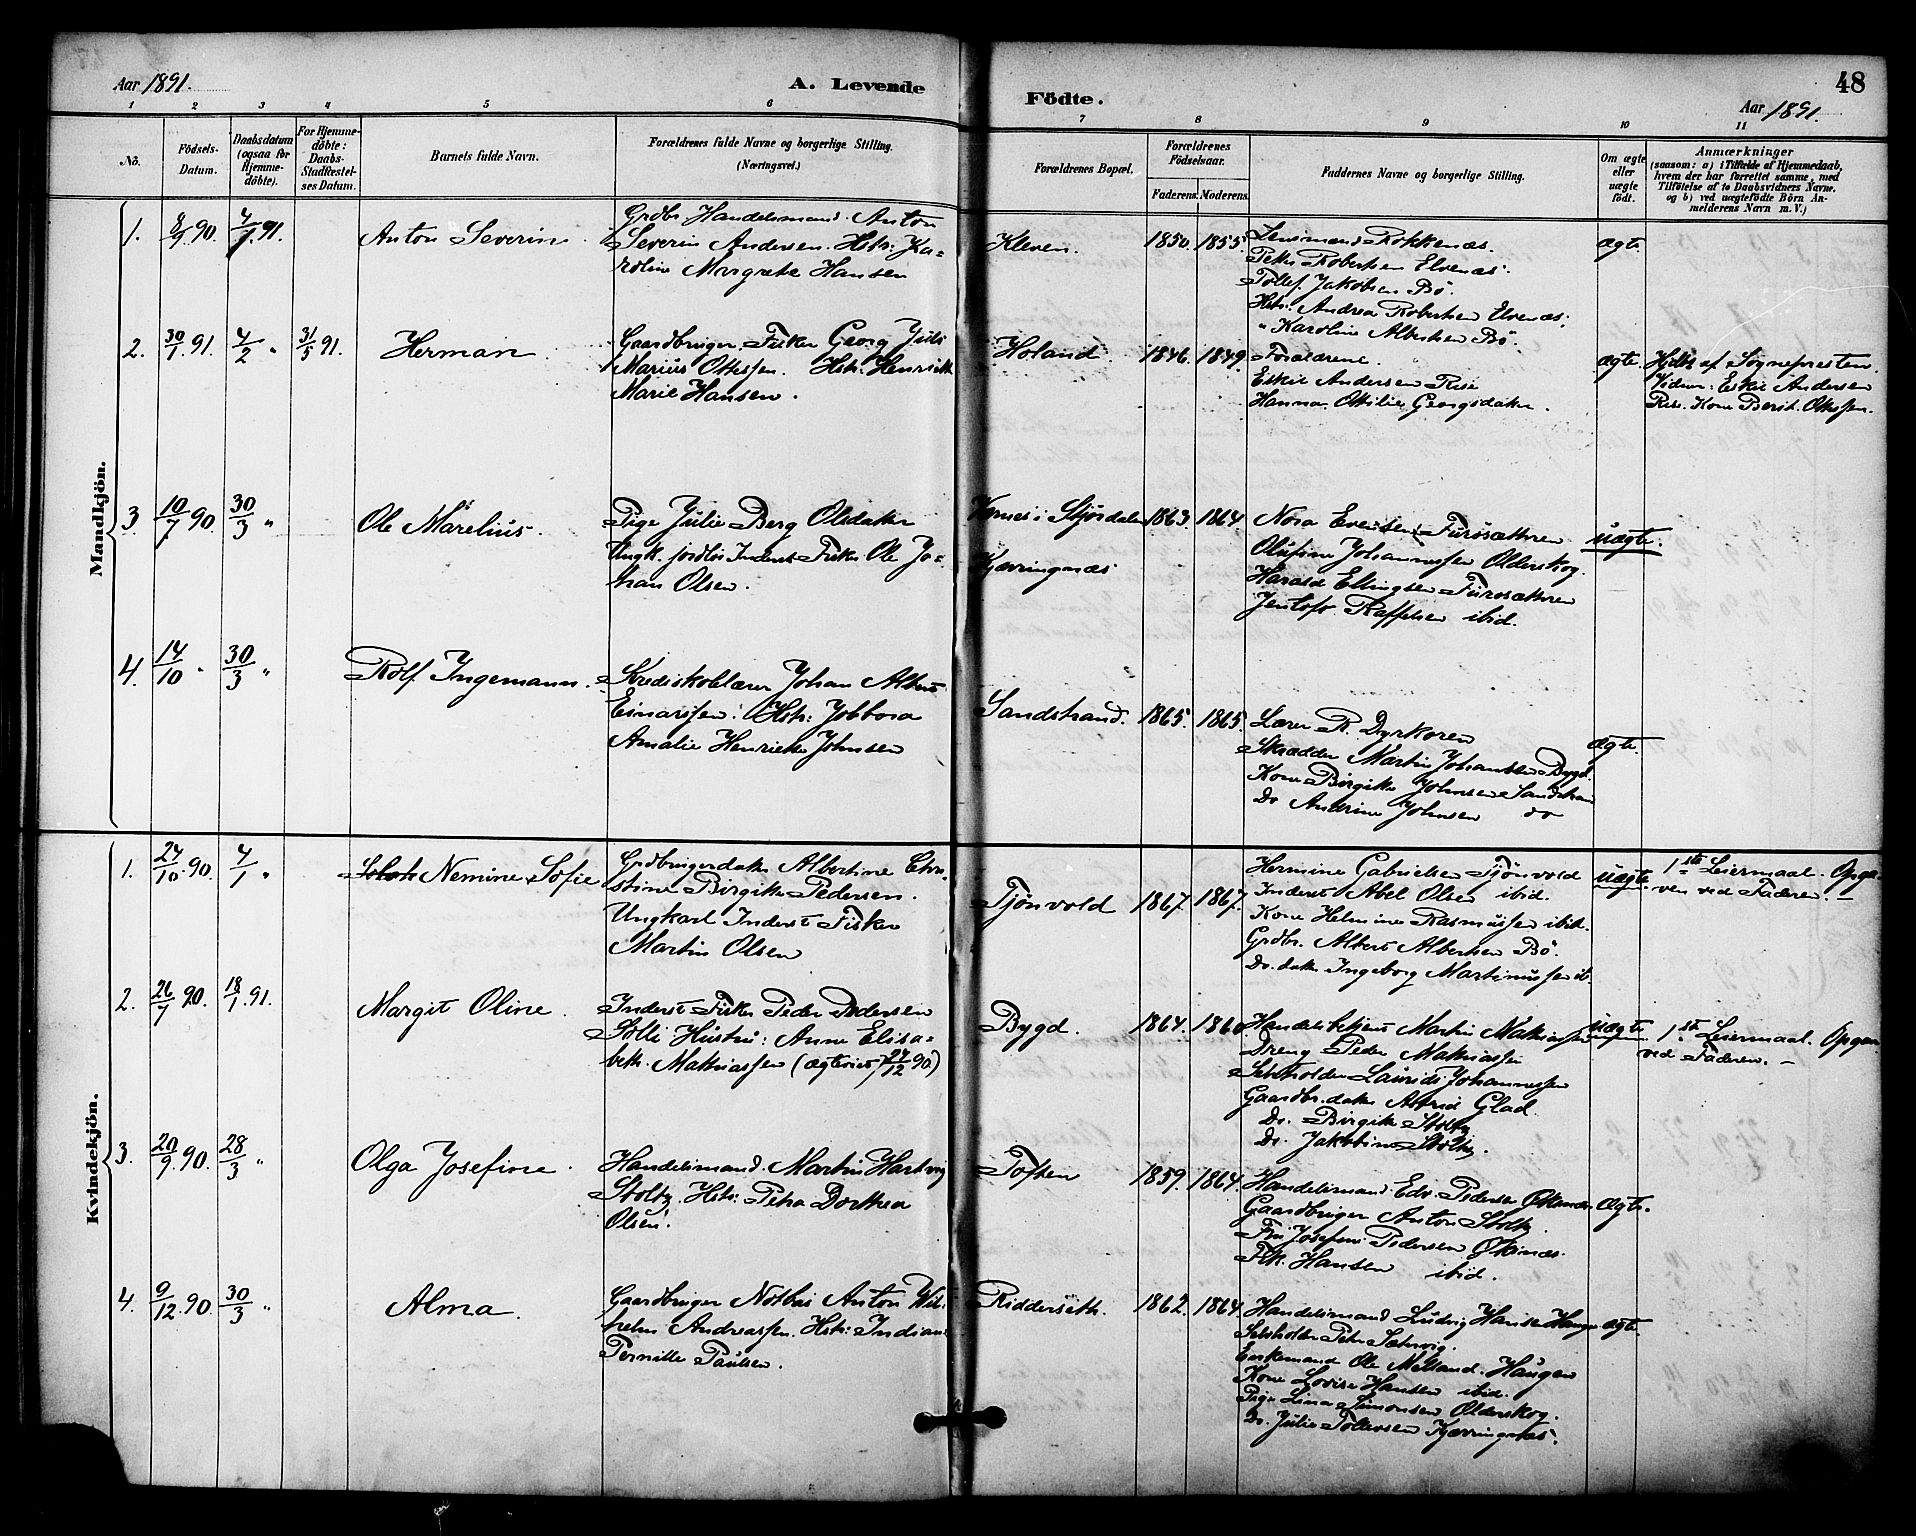 Aar 1891.
A. Levende
Födte.
48
Aar 1891.
1 2 3 4 5 6 7 8 9 10 11
No.
Födsels-
Datum.
Daabsdatum
(ogsaa for
Hjemme-
döbte).
For Hjemme-
döbte:
Daabs-
Stadfæstel-
ses Datum.
Barnets fulde Navn.
Forældrenes fulde Navne og borgerlige Stilling.
(Næringsvei.)
Forældrenes Bopæl.
Forældrenes
Födselsaar.
Faderens. Moderens.
Faddernes Navne og borgerlige Stilling.
Om ægte
eller
uægte
födt.
Anmærkninger
(saasom: a) i Tilfælde af Hjemmedaab,
hvem der har forrettet samme, med
Tilföielse af to Daabsvidners Navne.
og b) ved uægtefödte Börn An-
melderens Navn m. V.)
Mandkjön.
1. 8/9 90. 4/1 91.
Anton Severin
Grdbr. Handelsmand Anton
Severin Andersen. Hstr: Ka-
roline Margrete Hansen
Kleven. 1850. 1855.
Lensmand Rokkenæs.
Peter Robertsen Elvenæs.
Tollef Jakobsen Bö.
Hstr: Andrea Robertsen Elvenæs.
" Karoline Albertsen Bö.
ægte
2. 30/1 91. 4/2 " 31/5 91.
Herman
Gaardbruger, Fisker Georg Juli
Marius Ottessen. Hstr: Henriette
Marie Hansen.
Holand 1846. 1849.
Forældrene.
Eskil Andersen Rise
Hanna Ottilie Georgsdatter.
ægte.
Hjdbt af Sognepresten.
Vidner: Eskil Andersen
Rise. Kone Berit Ottessen.
3 10/7 90 30/3 "
Ole Marelius.
Pige Julie Berg Olsdatter
Ungk. jordlös Inderst Fisker Ole Jo-
han Olsen.
Værnes i Stjördalen 1863. 1864.
Kjærringnæs
Nora Evensen Furösætteren
Olufine Johannessen Olderskog.
Harald Ellingsen Furosætteren
Jentoft Raffelsen ibid.
uægte.
4. 14/10 " 30/3 "
Rolf Ingemann.
Kredsskolelærer Johan Albert
Einarssen. Hstr: Jobbora
Amalie Henriette Johnsen
Sandstrand. 1865. 1865.
Lærer R. Dyrkoren
Skrædder Martin Johansen Bygd.
Kone Birgitte Johnsen Sandstran
Do Andrine Johnsen do
ægte.
Kvindekjön.
1. 24/10 90. 4/1 "
Nemine Sofie
Grdbrugerdatter Albertine Chri-
stine Birgitte Pedersen.
Ungkarl Inderst Fisker
Martin Olsen
Tjönvold 1867. 1867.
Hermine Gabrielsen Tjönvold
Inderst Abel Olsen ibid.
Kone Helmine Rasmussen ibid.
Grdbr. Albert Albertsen Bö.
Do. datter Ingeborg Martinussen ib.
uægte
1ste Leiermaal. Opgi-
ven ved Faderen. —
2. 26/7 90. 18/1 91.
Margit Oline.
Inderst Fisker Peder Pedersen
Solli Hustru: Anne Elisa-
beth Mathiassen (ægteviet 27/12 90)
Bygd. 1864. 1860
Handelsbetjent Martin Mathiassen
Dreng Peder Mathiassen
Selvholden Laurids Johannessen
Gaardbr. datter Astrid Glad.
Do. Birgitte Stoltz
Do. Jakobine Stoltz.
uægte
1ste Leiermaal. Opgiven
ved Faderen. —
3. 20/9 90. 28/3 "
Olga Josefine.
Handelsmand Martin Hartvig
Stoltz. Hstr: Petra Dorthea
Olsen.
Toften 1859. 1864.
Handelsmand Edv. Pedersen Öksnæs
Gaardbruger Anton Stoltz
Fru Josefine Pedersen Öksnæs.
Frk. Hansen ibid.
Ægte.
4. 9/12 90. 30/3 "
Alma.
Gaardbruger Notbas Anton Wil-
helm Andreassen. Hstr: Indiane
Pernille Paulsen.
Ridderseth. 1862. 1864.
Handelsmand Ludvig Hansen Haugen
Selvholden Peter Sætervig.
Enkemand Ole Meland Haugen
Kone Lovise Hansen ibid.
Pige Lina Simonsen Olderskog.
Do. Julie Tollevsen Kjærringnæs.
ægte